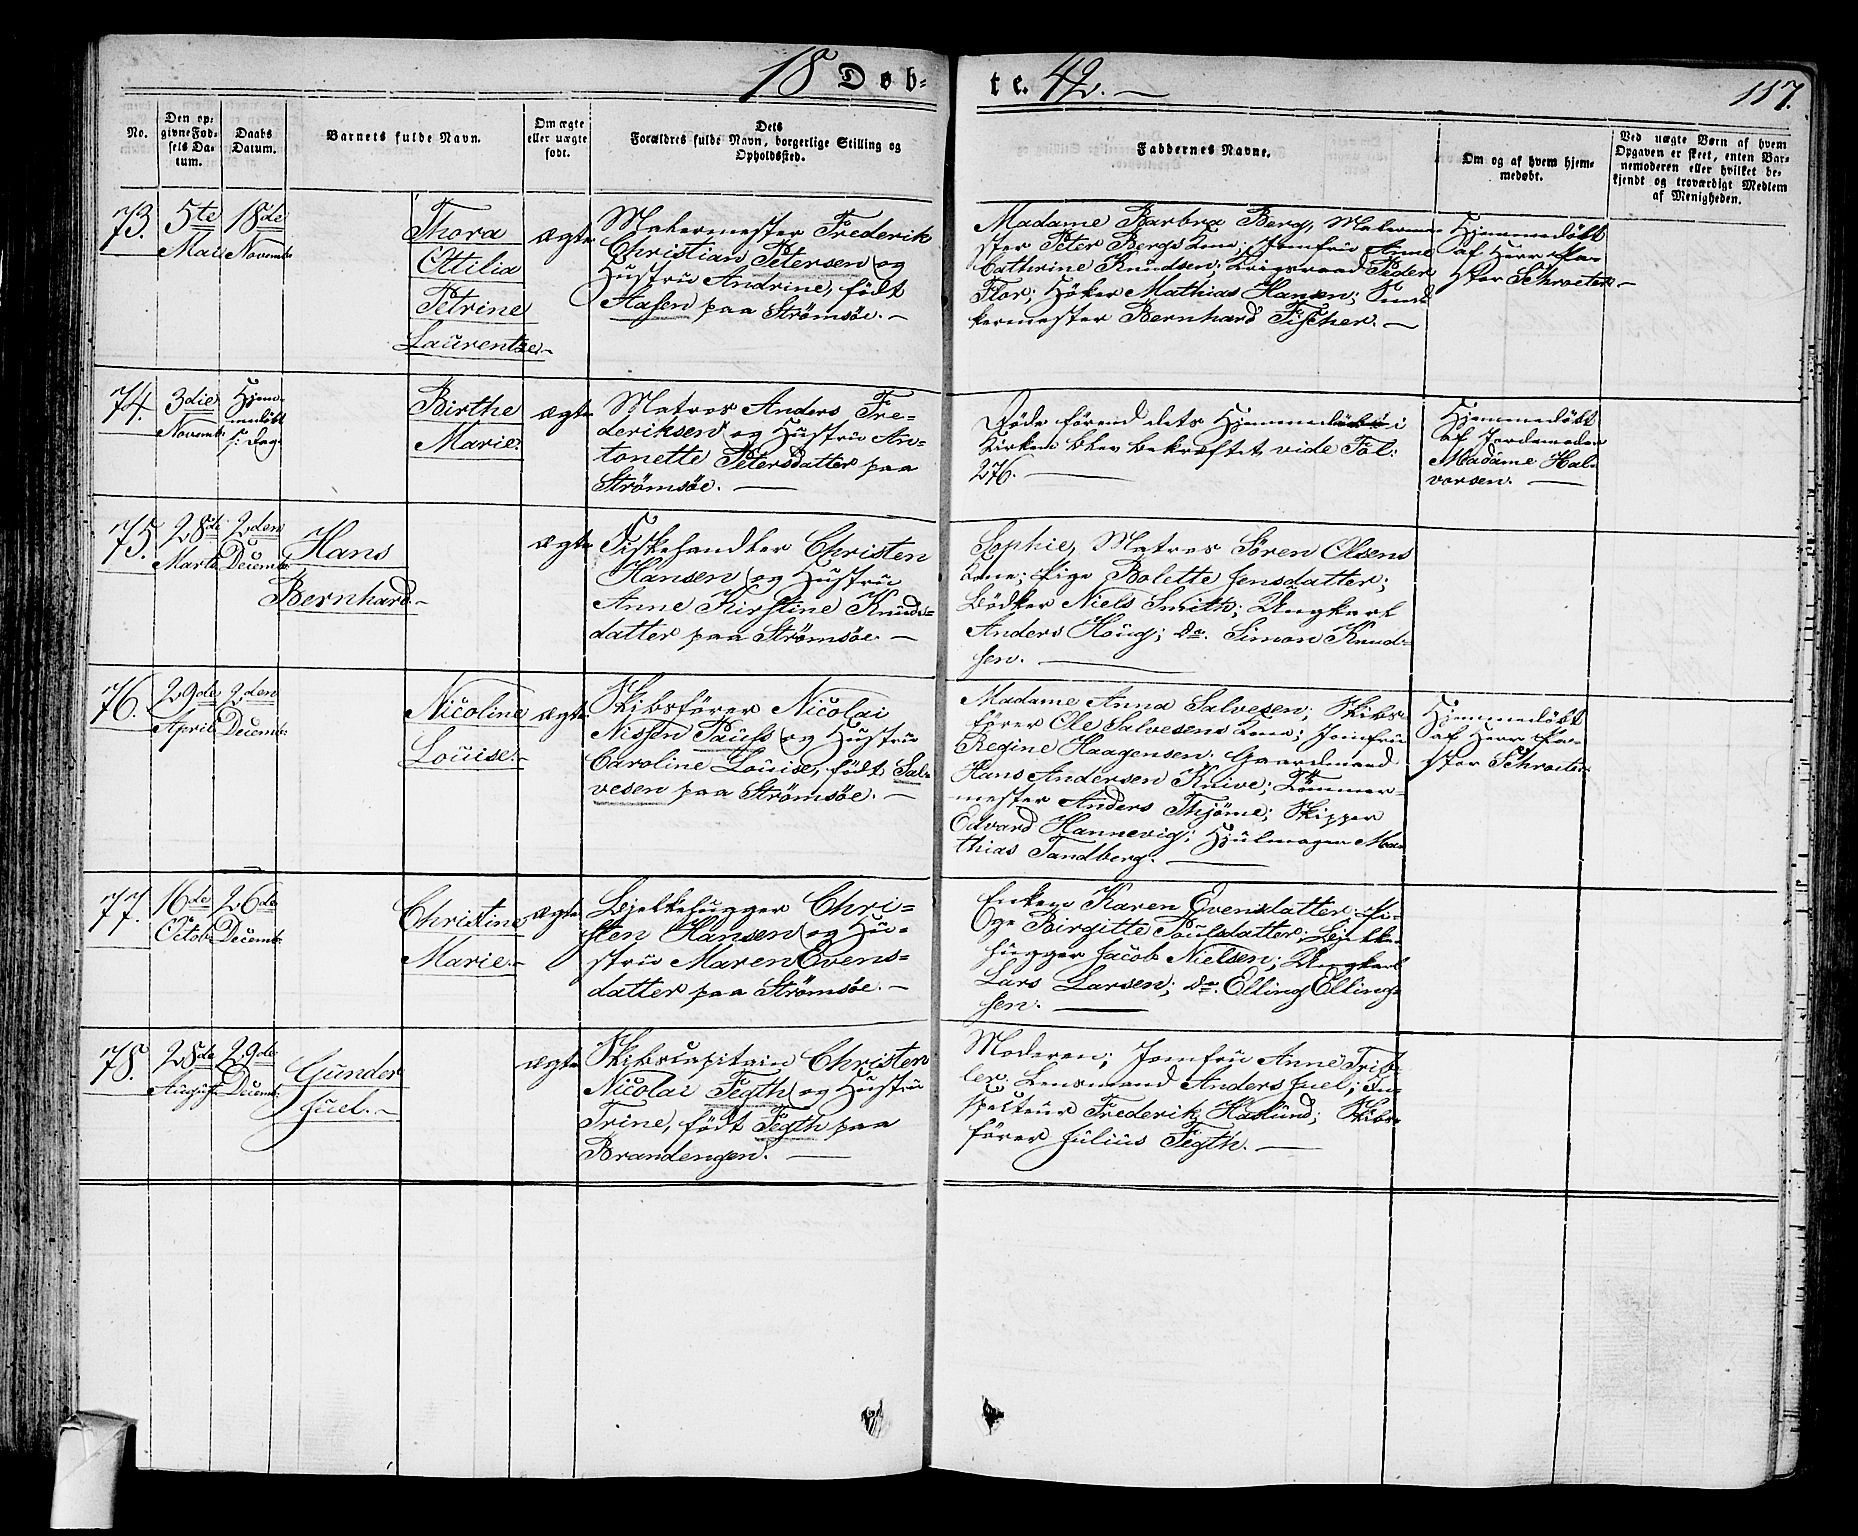 18 Døb-
te. 42.
117.
No.
Den op-
givne Fød-
sels Da-
tum.
Daabs
Datum.
Barnets fulde Navn.
Om ægte
eller uægte
født.
Dets
Forældres fulde Navn, borgerlige Stilling og
Opholdssted.
Faddernes Navne.
Om og af hvem hjem-
medøbt.
Ved uægte Børn af hvem
Opgaven er skeet, enten Bar-
nemoderen eller hvilket be-
kjendt og troværdigt Medlem
af Menigheden.
73.
5te
Mai
18de
Novemb:
Thora
Ottilia
Petrine
Laurentze.
ægte
Frederik
Christian Petersen og
Hustru Andrine, født
Aasen paa Strømsöe.
Madame Barbra Berg, Malerme-
ster Peter Bergs Kone; Jomfru Anne
Cathrine Knudsen; Krigsraad Peder
Flor; Höker Mathias Hansen;
kermester Bernhard Fischer.
Hjemmedöbt
af Herr Pa-
stor Schroeter
74.
3die
Novemb:
Hjem-
medöbt
s: Dag
Birthe
Marie.
ægte
Matros Anders Fre-
deriksen og Hustru An-
tonette Petersdatter paa
Strømsöe.
Döde förend dets Hjemmedaab i
Kirken blev bekræftet vide Fol:
276.
Hjemmedöbt
af Jordemoder
Madame Hal-
vorsen.
75.
28de
Marts
2den
Decemb:
Hans
Bernhard
ægte
Fiskehandler Christen
Hansen og Hustru
Anne Kirstine Knuds-
datter paa Strømsöe.
Sophie, Matros Sören Olsens
Kone; Pige Bolette Jensdatter;
Bödker Niels Smith; Ungkarl
Anders Houg; do. Simon Knud-
sen.
76.
29de
April
2den
Decemb:
Nicoline
Louise.
ægte
Skibsförer Nicolai
Nissen Pauss og Hustru
Caroline Louise, födt Sal-
vesen paa Strømsöe.
Madame Anna Salvesen; Skibs-
förer Ole Salvesens Kone; Jomfru
Regine Haagensen; Gaardmand
Hans Andersen Knive; Tömmer-
mester Anders Thjöme; Skipper
Edvard Hannevig; Hjulmager Ma-
thias Tandberg.
Hjemmedöbt
af Herr Pa-
stor Schroeter
77.
16de
Octob:
26de
Decemb:
Christine
Marie.
ægte
Bjelkehugger Chri-
sten Hansen og Hu-
stru Maren Evens-
datter paa Strømsöe.
Enken Karen Evensdatter; Pi-
ge Birgitte Poulsdatter; Bjelke-
hugger Jacob Nielsen; Ungkarl
Lars Larsen; do. Elling Elling-
sen.
78.
28de
August
29de
Decemb:
Gunder
Juel.
ægte
Skibscapitain Christen
Nicolai Fegth og Hustru
Trine, födt Fegth paa
Brandengen.
Moderen; Jomfru Anne Trist-
ler; Lensmand Anders Juel; In-
specteur Frederik Haslund; Skibs-
förer Julius Fegth.